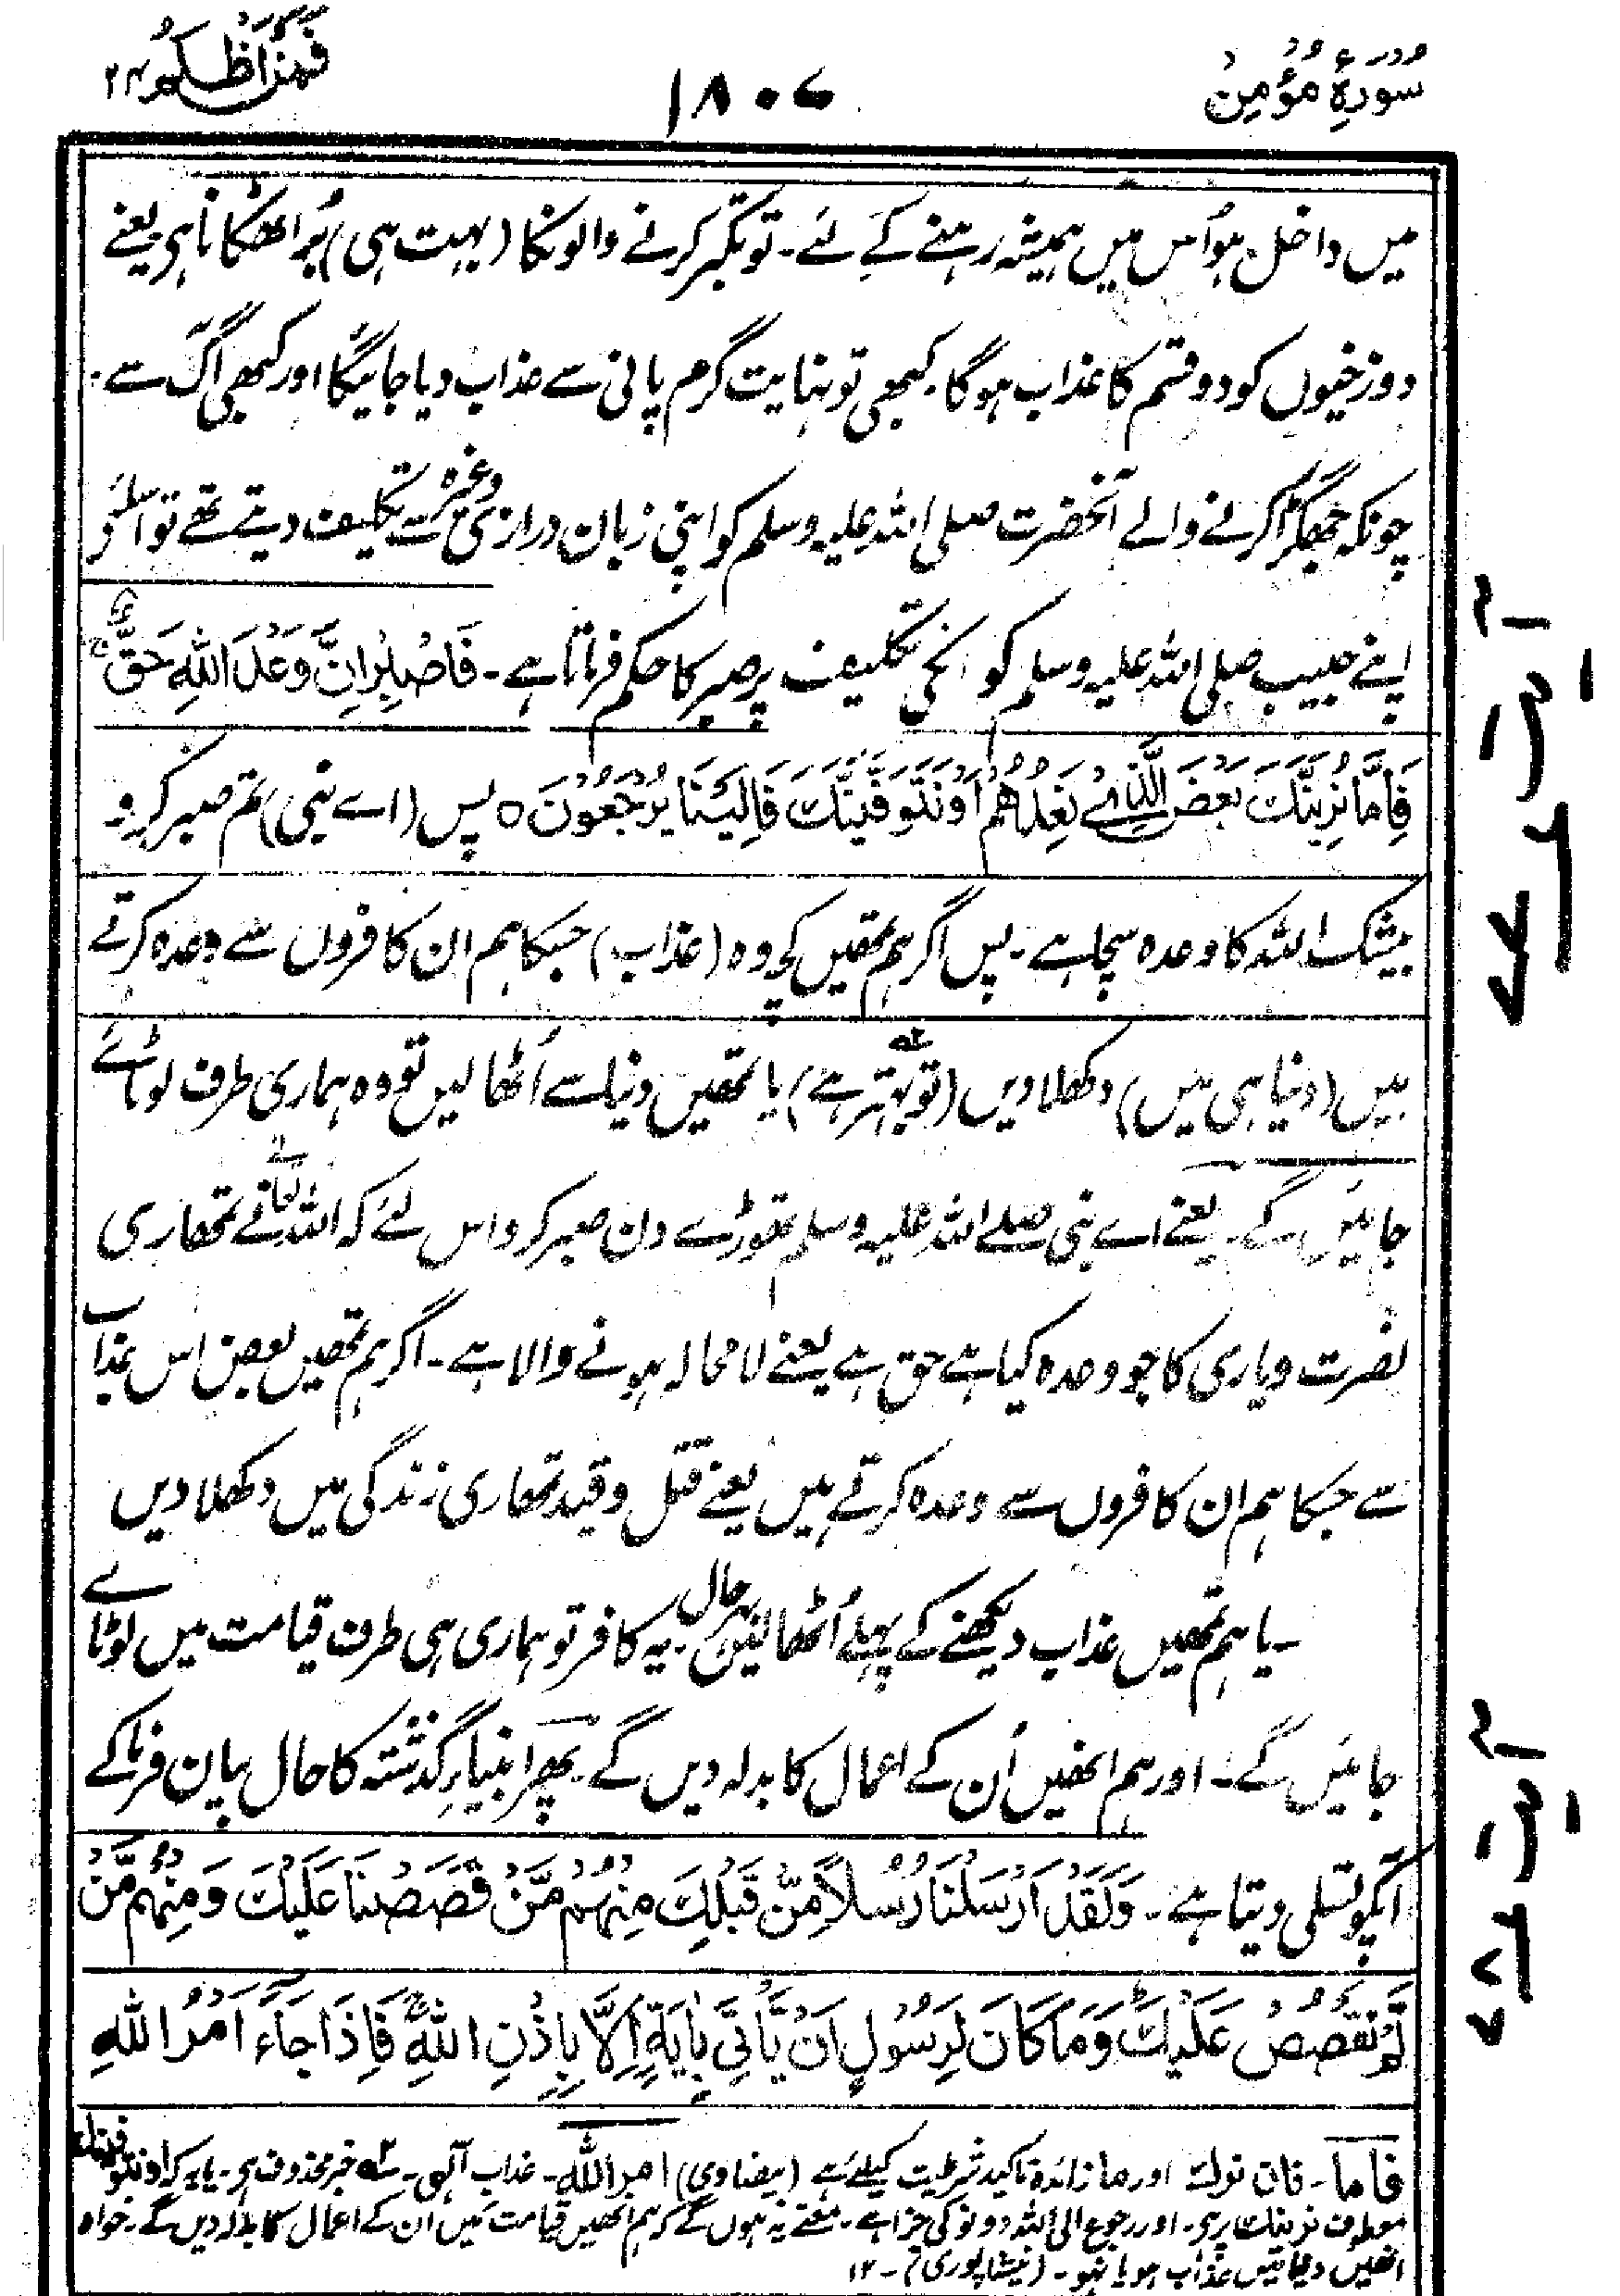 سورۂ مؤمن
۱۸۰۷
فمن اظلم ۲۴
میں داخل ہو اُس میں ہمیشہ رہنے کے لئے۔ تو تکبّر کرنے والونکا (بہت ہی) بُرا ٹھکانا ہی یعنے
دوزخیوں کو دو قسم کا عذاب ہوگا۔ کبھی تو نہایت گرم پانی سے عذاب دیا جائیگا اور کبھی آگ سے۔
چونکہ جھگڑا کرنے والے آنحضرت صلی اللہ علیہ وسلم کو اپنی زبان درازی وغیرہ سے تکلیف دیتے تھے تو اسلئے
اپنے حبیب صلی اللہ علیہ وسلم کو انکی تکلیف پر صبر کا حکم فرماتا ہے۔ فَاصْبِرْ اِنَّ وَعْدَ اللّٰهِ حَقٌّ ۚ
فَاِمَّا نُرِیَنَّكَ بَعْضَ الَّذِیْ نَعِدُهُمْ اَوْ نَتَوَفَّیَنَّكَ فَاِلَیْنَا یُرْجَعُوْنَ ○ پس (اے نبی) تم صبر کرو
بیشک اللہ کا وعدہ سچّا ہے۔ پس اگر ہم تمھیں کچھ وہ (عذاب) جسکا ہم ان کافروں سے وعدہ کرتے
ہیں (دنیا ہی میں) دکھلادیں (تو بہتر ہے) یا تمھیں دنیا سے اُٹھا لیں تو وہ ہماری طرف لوٹائے
جائیں گے۔ یعنے اے نبی صلے اللہ علیہ وسلم تھوڑے دن صبر کرو اس لئے کہ اللہ تعالے نے تمھاری
نصرت ویاری کا جو وعدہ کیا ہے حق ہے یعنے لا محالہ ہونے والا ہے۔ اگر ہم تمھیں بعض اس عذاب
سے جسکا ہم ان کافروں سے وعدہ کرتے ہیں یعنے قتل وقید تمھاری زندگی میں دکھلادیں
۔یا ہم تمھیں عذاب دیکھنے کے پہلے اُٹھا لیں بہر حال یہ کافر تو ہماری ہی طرف قیامت میں لوٹائے
جائیں گے۔ اور ہم انھیں اُن کے اعمال کا بدلہ دیں گے۔ پھر انبیاءِ گذشتہ کا حال بیان فرما کے
آپکو تسلی دیتا ہے۔ وَلَقَدْ اَرْسَلْنَا رُسُلًا مِّنْ قَبْلِكَ مِنْهُمْ مَّنْ قَصَصْنَا عَلَیْكَ وَمِنْهُمْ مَّنْ
لَّمْ نَقْصُصْ عَلَیْكَ ؕ وَمَا كَانَ لِرَسُوْلٍ اَنْ یَّاْتِیَ بِاٰیَةٍ اِلَّا بِاِذْنِ اللّٰهِ ۚ فَاِذَا جَآءَ اَمْرُ اللّٰهِ
فاما۔ فان نرك اور ما زائدہ تاکید شرطیت کیلئے ہے (بیضاوی) امر اللہ۔ عذاب آلٰہی۔ خبر محذوف ہی۔ یا یہ کہ او نتوفینك
معطوف نرینك پر ہی۔ اور رجوع الی اللہ دونوکی جزا ہے۔ معنے یہ ہوں گے کہ ہم انھیں قیامت میں ان کے اعمال کا بدلا دیں گے۔ خواہ
انھیں دنیا میں عذاب ہو یا نہو۔ (نیشاپوری)۔ ۱۲